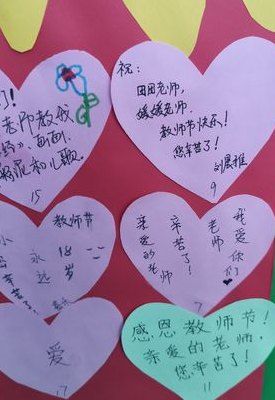 们!
老师教我
》,画画,
和儿歌。
15
祝:
田田老师,
媛媛老师
教师节快乐!
您辛苦了!
刘晨雅
9
教师节
永远
18岁
小
我爱你们
老师
辛苦了!
亲爱的老师
7
爱
17
感恩教师节!
亲爱的老师,
您辛苦了!
11